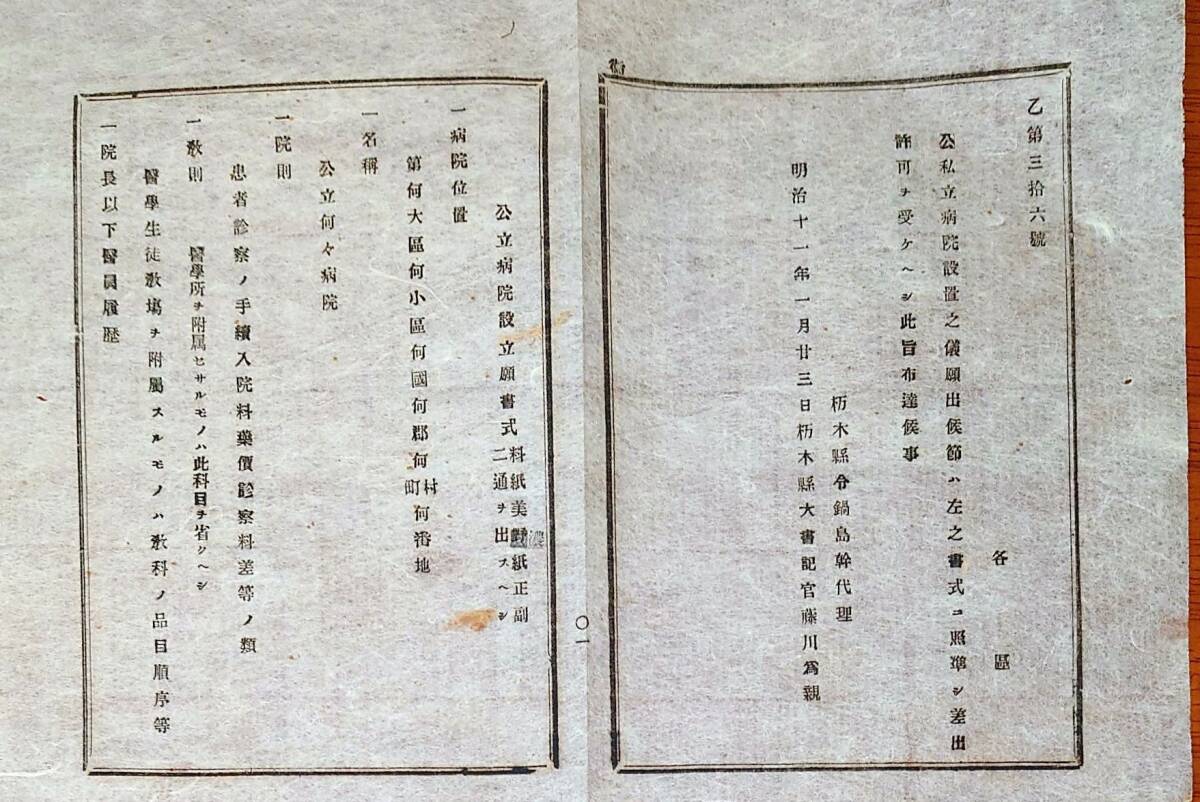 乙第三拾六號
各區
公私立病院設置之儀願出候節ハ左之書式ニ照準シ差出
許可ヲ受ケヘシ此旨布達候事
栃木縣令鍋島幹代理
明治十一年一月廿三日栃木縣大書記官藤川爲親
〇一
公立病院設立願書式
料紙美濃紙正副
二通ヲ出スヘシ
一病院位置
第何大區何小區何國何郡何村町何番地
一名稱
公立何々病院
一院則
患者診察ノ手續入院料藥價診察料差等ノ類
一敎則
醫學所ヲ附属セサルモノハ此科目ヲ省クヘシ
醫學生徒敎塲ヲ附屬スルモノハ敎科ノ品目順序等
一院長以下醫員履歴